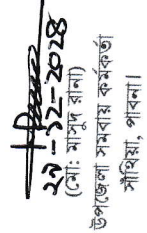 ২৯-১২-২০২৪
(মো: মাসুদ রানা)
উপজেলা সমবায় কর্মকর্তা
সাঁথিয়া, পাবনা।